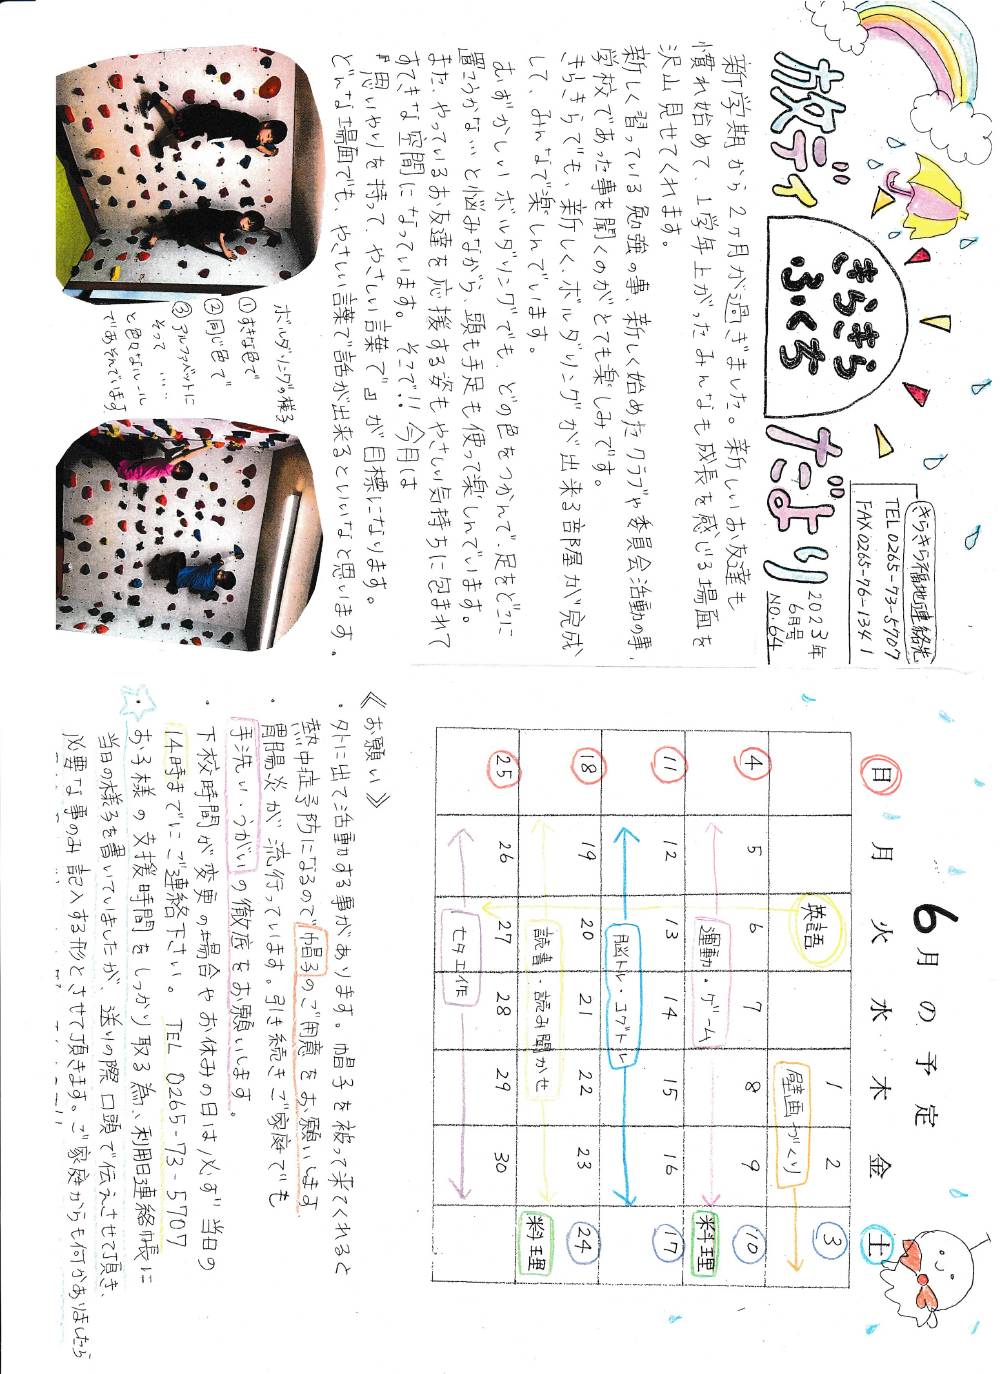 きらきら福地連絡先
TEL 0265-73-5707
FAX 0265-76-1341
放ディ きらきらふくち だより
2023年
6月号
NO.64
新学期から2ヶ月が過ぎました。新しいお友達も
慣れ始めて、1学年上がったみんなも成長を感じる場面を
沢山見せてくれます。
新しく習っている勉強の事、新しく始めたクラブや委員会活動の事、
学校であった事を聞くのがとても楽しみです。
きらきらでも、新しく、ボルダリングが出来る部屋が完成
して、みんなで楽しんでいます。
むずかしいボルダリングでも、どの色をつかんで、足をどこに
置こうかな…と悩みながら、頭も手足も使って楽しんでいます。
また、やっているお友達を応援する姿もやさしい気持ちに包まれて
すてきな空間になっています。そこで!!今月は
『思いやりを持って、やさしい言葉で』が目標になります。
どんな場面でも、やさしい言葉で話が出来るといいなと思います。
ボルダリングの様子
①すきな色で
②同じ色で
③アルファベットに
そって……
と色々なルール
であそんでいます
6月の予定
日 月 火 水 木 金 土
英語 1 2 3
壁画づくり
4 5 6 7 8 9 10
運動・ゲーム 料理
11 12 13 14 15 16 17
脳トレ・コグトレ
18 19 20 21 22 23 24
読書・読み聞かせ 料理
25 26 27 28 29 30
七夕工作
《お願い》
・外に出て活動する事があります。帽子を被って来てくれると
熱中症予防になるので帽子のご用意をお願いします
・胃腸炎が流行っています。引き続きご家庭でも
手洗い・うがいの徹底をお願いします。
・下校時間が変更の場合やお休みの日は必ず当日の
14時までにご連絡下さい。 TEL 0265-73-5707
・お子様の支援時間をしっかり取る為、利用日連絡帳に
当日の様子を書いていましたが、送りの際口頭で伝えさせて頂き、
必要な事のみ記入する形とさせて頂きます。ご家庭からも何かありましたら